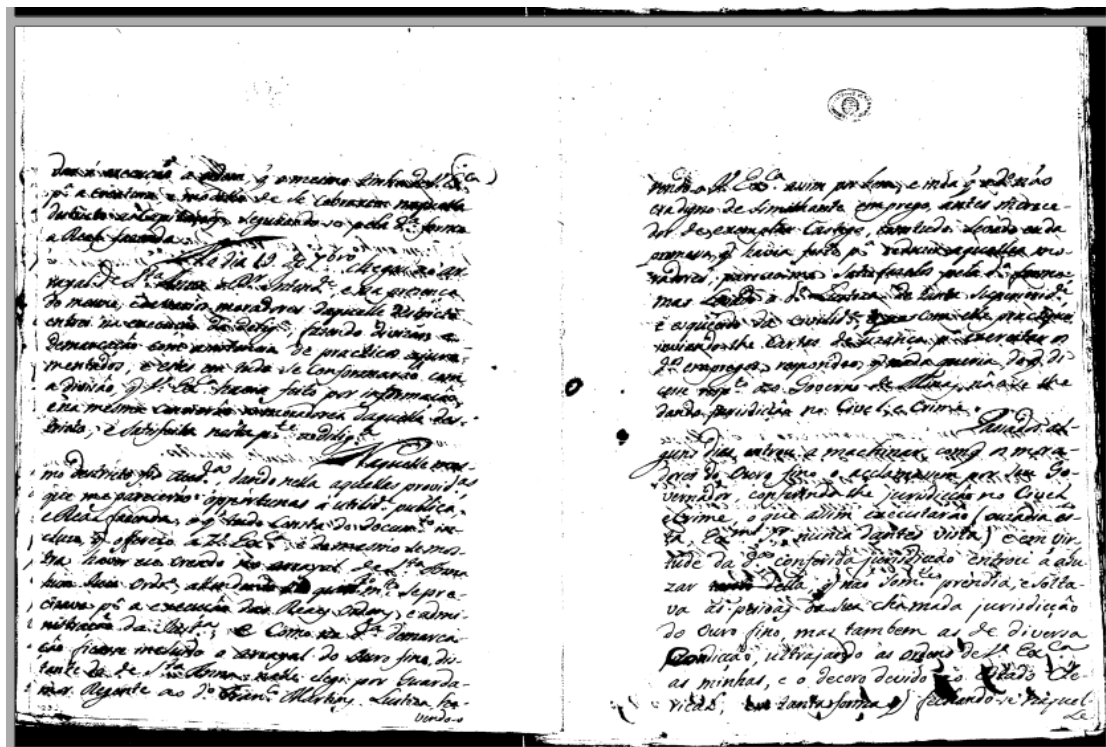 dar á execução a ordem, q̃ o mesmo tinha de V. Ex.ca
p.a a se cobrarem naquelle
destricto regulando-se pela d.a forma
a Real fazenda.
No dia 19 de 7bro cheguei ao ar-
rayal de S.ta Anna o D.r Intend.e e na presença
do mesmo, moradores daquelle destricto
entrei na execução da delig.a, fazendo divizão, e
demarcação com assistencia de practicos ajura-
mentados, e estes em tudo se conformarão com
a divizão, q̃ V. Ex.ca havia feito por informação,
e na mesma os moradores daquelle des-
tricto, e satisfeita nesta p.te a delig.a
Naquelle mes-
mo destricto fiz aud.ca, dando nella aquellas provid.as
que me parecerão opportunas á utilid.e publica,
e Real fazenda, o q̃ tudo consta do docum.to in-
cluso, q̃ ofereço a V. Ex.ca, e do mesmo se mos-
tra haver eu creado no arrayal de S.ta Anna
hum Juiz Ord.o, attendendo q̃ m.to se pre-
cizava p.a a execução das Reaes Ordens, e admi-
nistração da Just.a, e como na d.a demarca-
ção ficasse incluido o arrayal do Ouro fino, dis-
tante do de S.ta Anna, nelle elegi por Guarda-
mor Regente ao d.o Fran.co Martins Lustoza, ha-
vendo-o
vendo-o V. Ex.ca assim por bem, e inda q̃ o d.o não
era digno de similhante emprego, antes merece-
dor de exemplar castigo, comtudo levado eu da
promessa, q̃ havia feito p.a reduzir aquelles mo-
radores, satisfazelos pela d.a forma
mas o d.o Lustoza de
e esquecido da civilid.e, com elle practiquei
inviando-lhe cartas de uzança p.a exercitar os
d.os empregos, respondeo, q̃ nada queria do q̃ di-
cesse resp.to ao Governo de Minas, não se lhe
dando jurisdicão no Civel, e Crime.
Passados al-
guns dias entrou a machinar, com q̃ os mora-
dores do Ouro fino o acclamassem por seu Go-
vernador, conferindo-lhe jurisdicção no Civel
e Crime, o que assim executarão (ouzadia es-
ta, Ex.mo Sr. nunca dantes vista) e em vir-
tude da d.a conferida jurisdicção entrou a abu-
zar della q̃ não som.te prendia, e solta-
va as pessoas da sua chamada jurisdicção
do Ouro fino, mas tambem as de diversa
condicção, ultrajando as ordens de V. Ex.ca
as minhas, e o decoro devido ao Estado Cle-
rical, em tanta forma q̃ fechando-se naquel-
le